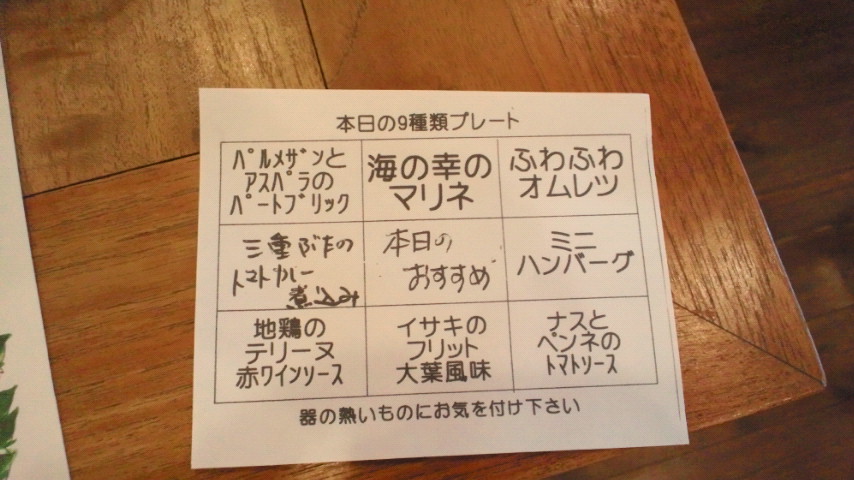 本日の9種類プレート
パルメザンと
アスパラの
パートブリック
海の幸の
マリネ
ふわふわ
オムレツ
三重ぶたの
トマトカレー
煮込み
本日の
おすすめ
ミニ
ハンバーグ
地鶏の
テリーヌ
赤ワインソース
イサキの
フリット
大葉風味
ナスと
ペンネの
トマトソース
器の熱いものにお気を付け下さい